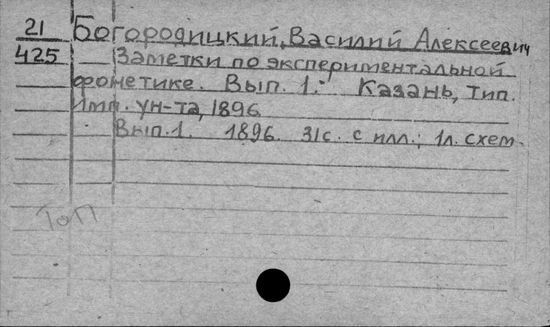 21 Богородицкий, Василий Алексеевич
425 Заметки по экспериментальной
фонетике. Вып. 1.- Казань, тип.
Имп. ун-та, 1896.
Вып.1. 1896. 31с. с илл.; 1л. схем.
ТоП